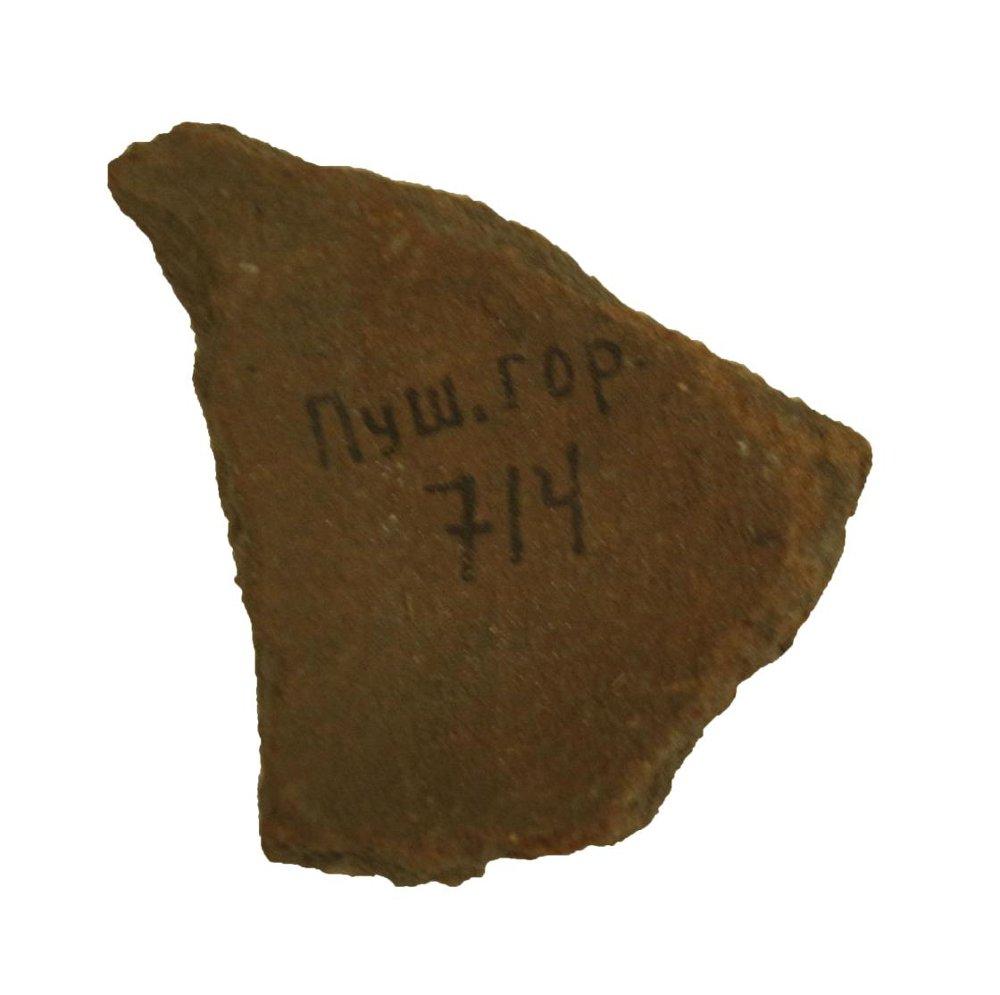 Пуш. гор.
714